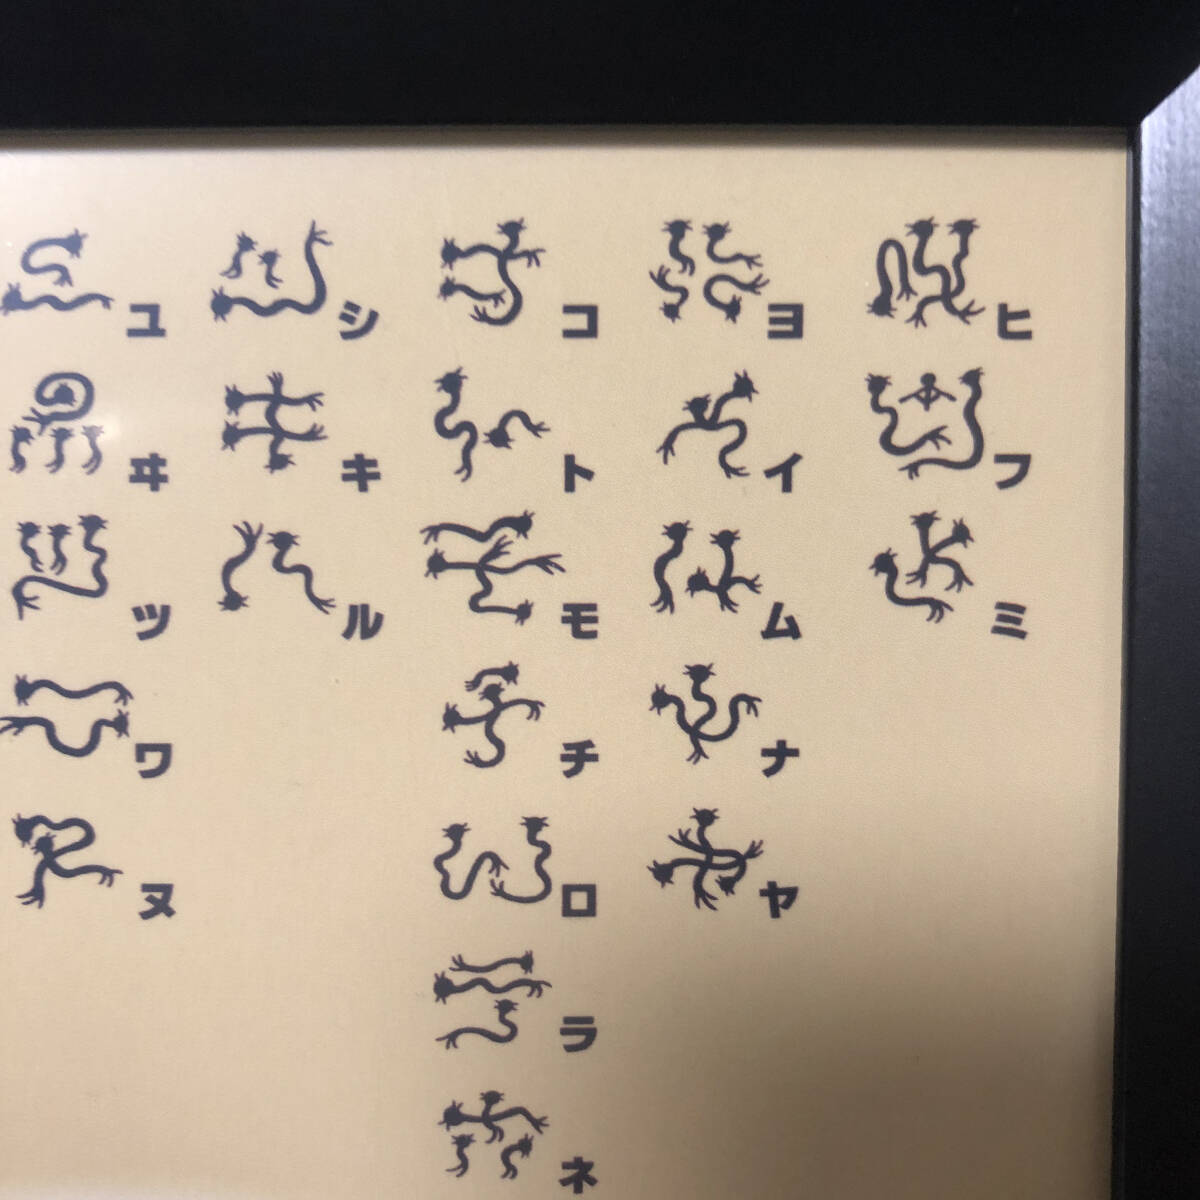 ヒフミ
ヨイムナヤ
コトモチロラネ
シキル
ユヰツワヌ